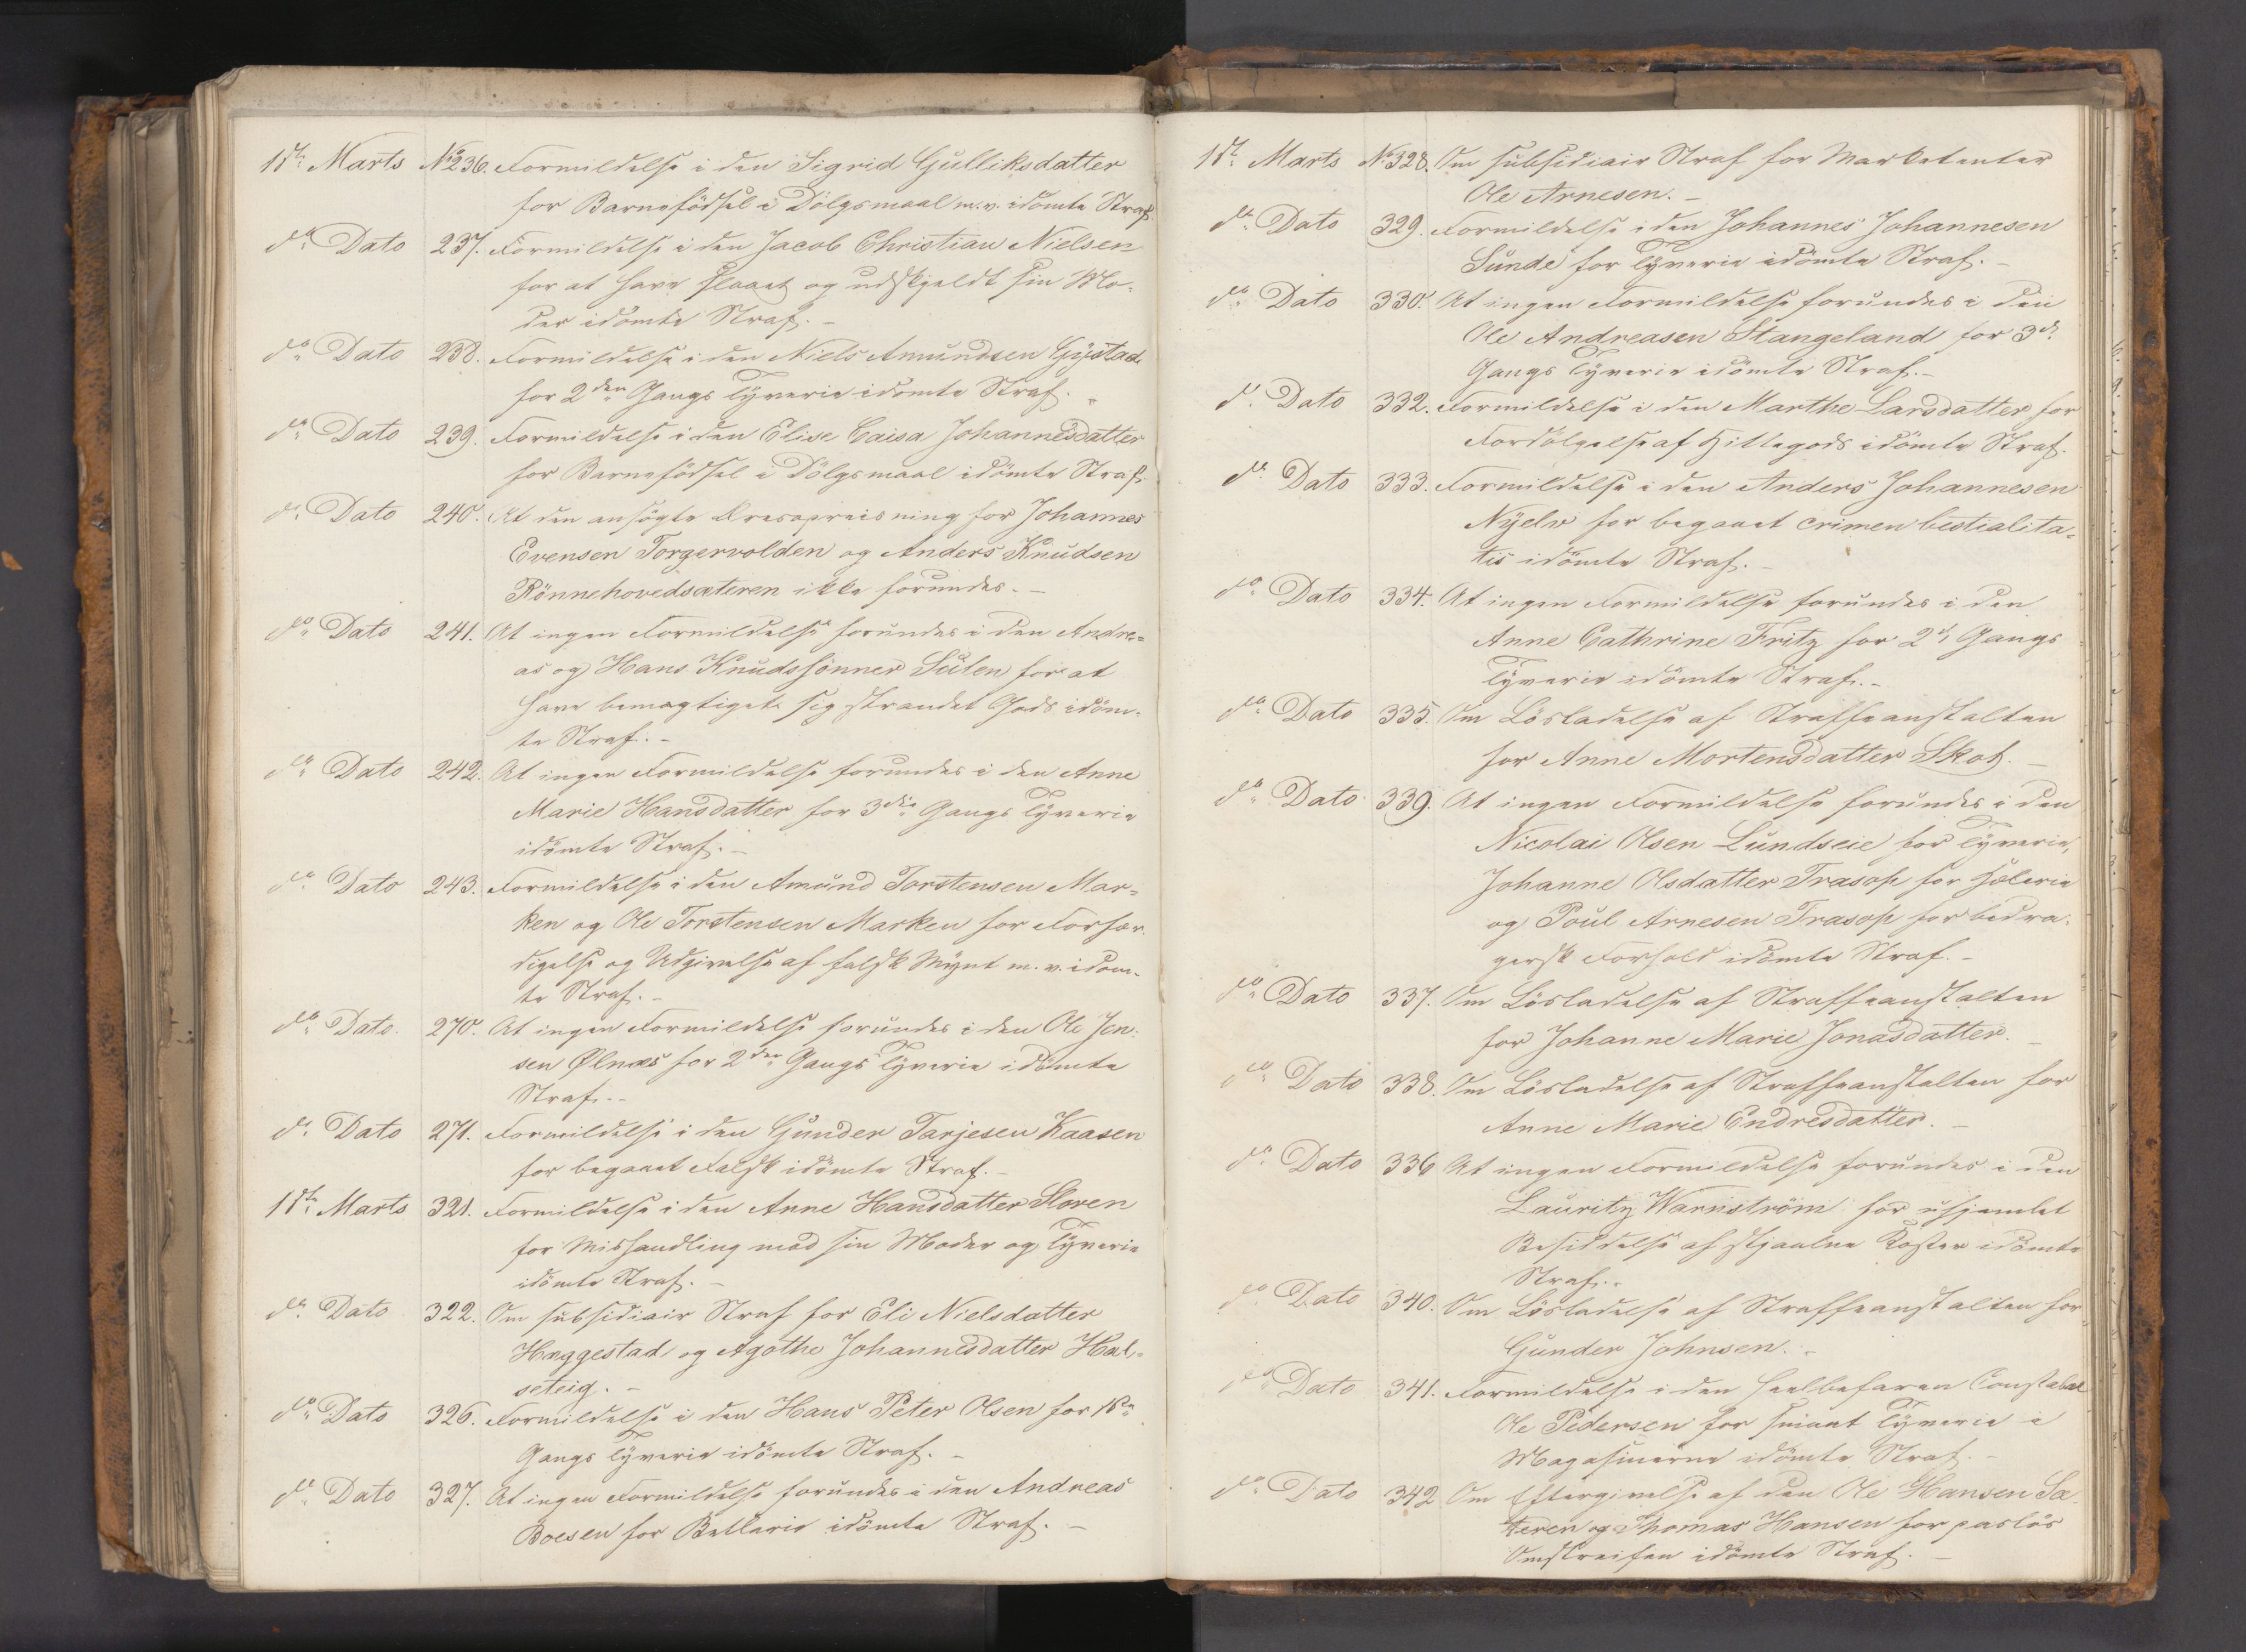 1ste Marts No 236. Formildelse i den Sigrid Gulliksdatter
for Barnefödsel i Dölgsmaal m.v. idömte Straf
do Dato 237. Formildelse i den Jacob Christian Nielsen
for at have slaaet og udskjeldt sin Mo=
der idömte Straf. –
do Dato 238. Formildelse i den Niels Amundsen Gystad
for 2den Gangs Tyverie idömte Straf.
do Dato 239. Formildelse i den Elise Caisa Johannesdatter
for Barnefödsel i Dölgsmaal idömte Straf.
do Dato 240. At den ansögte Æresopreisning for Johannes
Evensen Torgervolden og Anders Knudsen
Rönnehovedsæteren ikke forundes. –
do Dato 241. At ingen Formildelse forundes i den Andre=
as og Hans Knudssönner Sulen for at
have bemægtiget sig strandet Gods idöm=
te Straf. –
do Dato 242. At ingen Formildelse forundes i den Anne
Marie Hansdatter for 3die Gangs Tyverie
idömte Straf. –
do Dato 243. Formildelse i den Amund Torstensen Mar=
ken og Ole Torstensen Marken for Forfær=
digelse og Udgivelse af falsk Mynt m.v. idöm=
te Straf. –
do Dato. 270. At ingen Formildelse forundes i den Ole Jen=
sen Ølnæs for 2den Gangs Tyverie idömte
Straf. –
do Dato 271. Formildelse i den Gunder Tarjesen Kaasen
for begaaet Falsk idömte Straf. –
1ste Marts 321. Formildelse i den Anne Hansdatter Floren
for Mishandling mod sin Moder og Tyverie
idömte Straf. –
do Dato 322. Om subsidiair Straf for Eli Nielsdatter
Hæggestad og Agothe Johannesdatter Hal=
seteig. –
do Dato 326. Formildelse i den Hans Peter Olsen for 1ste
Gangs Tyverie idömte Straf. –
do Dato 327. At ingen Formildelse forundes i den Andreas
Boesen for Betlerie idömte Straf. –
1ste Marts No 328. Om subsidiair Straf for Marketenter
Ole Arnesen. –
do Dato 329. Formildelse i den Johannes Johannesen
Sunde for Tyverie idömte Straf. –
do Dato 330. At ingen Formildelse forundes i den
Ole Andreasen Stangeland for 3die
Gangs Tyverie idömte Straf. –
do Dato 332. Formildelse i den Marthe Larsdatter for
Fordölgelse af Hittegods idömte Straf.
do Dato 333. Formildelse i den Anders Johannesen
Nyelv for begaaet crimen bestialita=
tis idömte Straf. –
do Dato 334. At ingen Formildelse forundes i den
Anne Cathrine Fritz for 2den Gangs
Tyverie idömte Straf. –
do Dato 335. Om Lösladelse af Straffeanstalten
for Anne Mortensdatter Skot. –
do Dato 339. At ingen Formildelse forundes i den
Nicolai Olsen Lundseie for Tyverie,
Johanne Olsdatter Trasop for Hæleri
og Poul Arnesen Trasop for bedra=
gersk Forhold idömte Straf. –
do Dato 337. Om Lösladelse af Straffeanstalten
for Johanne Marie Jonasdatter. –
do Dato 338. Om Lösladelse af Straffeanstalten for
Anne Marie Endresdatter. –
do Dato 336 At ingen Formildelse forundes i den
Lauritz Warnström for uhjemlet
Besiddelse af stjaalne Koster idömte
Straf. –
do Dato 340. Om Lösladelse af Straffeanstalten for
Gunder Johnsen. –
do Dato 341. Formildelse i den heelbefaren Constabel
Ole Pedersen for simant Tyverie i
Magasinerne idömte Straf. –
do Dato 342 Om Eftergivelse af den Ole Hansen Sæ=
teren og Thomas Hansen for paslös
Omstreifen idömte Straf. –